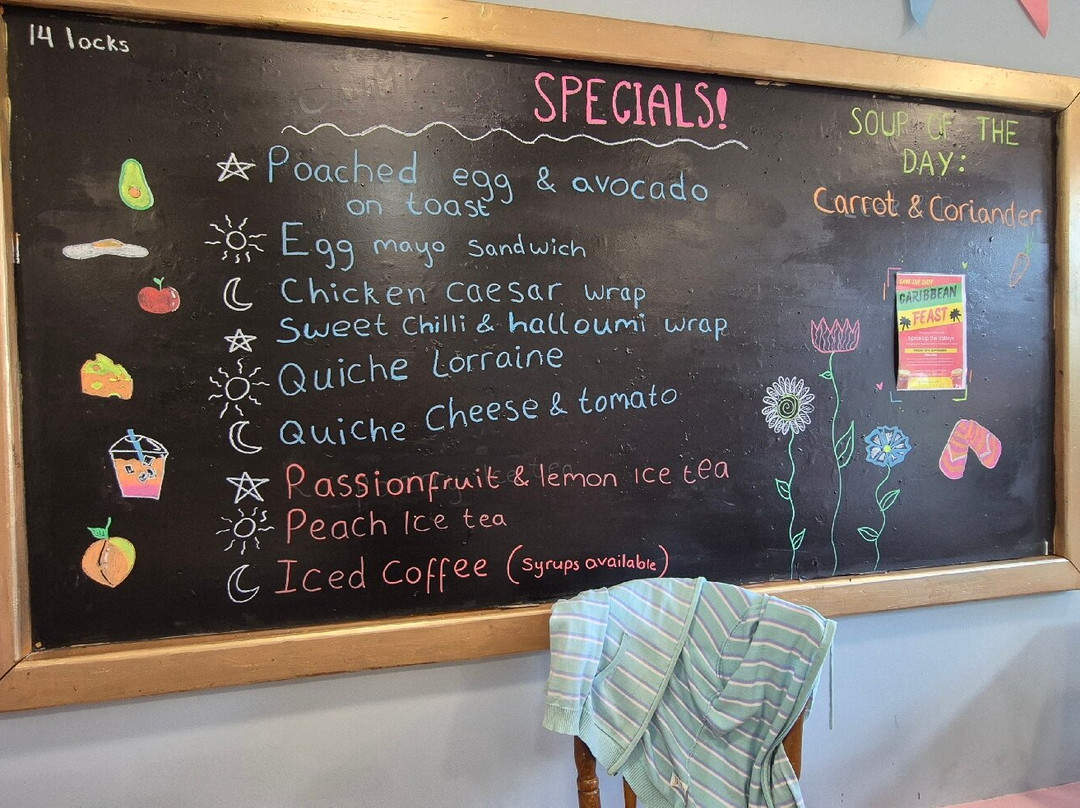 14 locks
SPECIALS!
Poached egg & avocado
on toast
Egg mayo Sandwich
Chicken caesar wrap
Sweet Chilli & halloumi wrap
Quiche Lorraine
Quiche Cheese & tomato
Passionfruit & lemon Ice tea
Peach Ice tea
Iced Coffee (Syrups available)
SOUP OF THE
DAY:
Carrot & Coriander
SAVE THE DAY
CARIBBEAN
FEAST